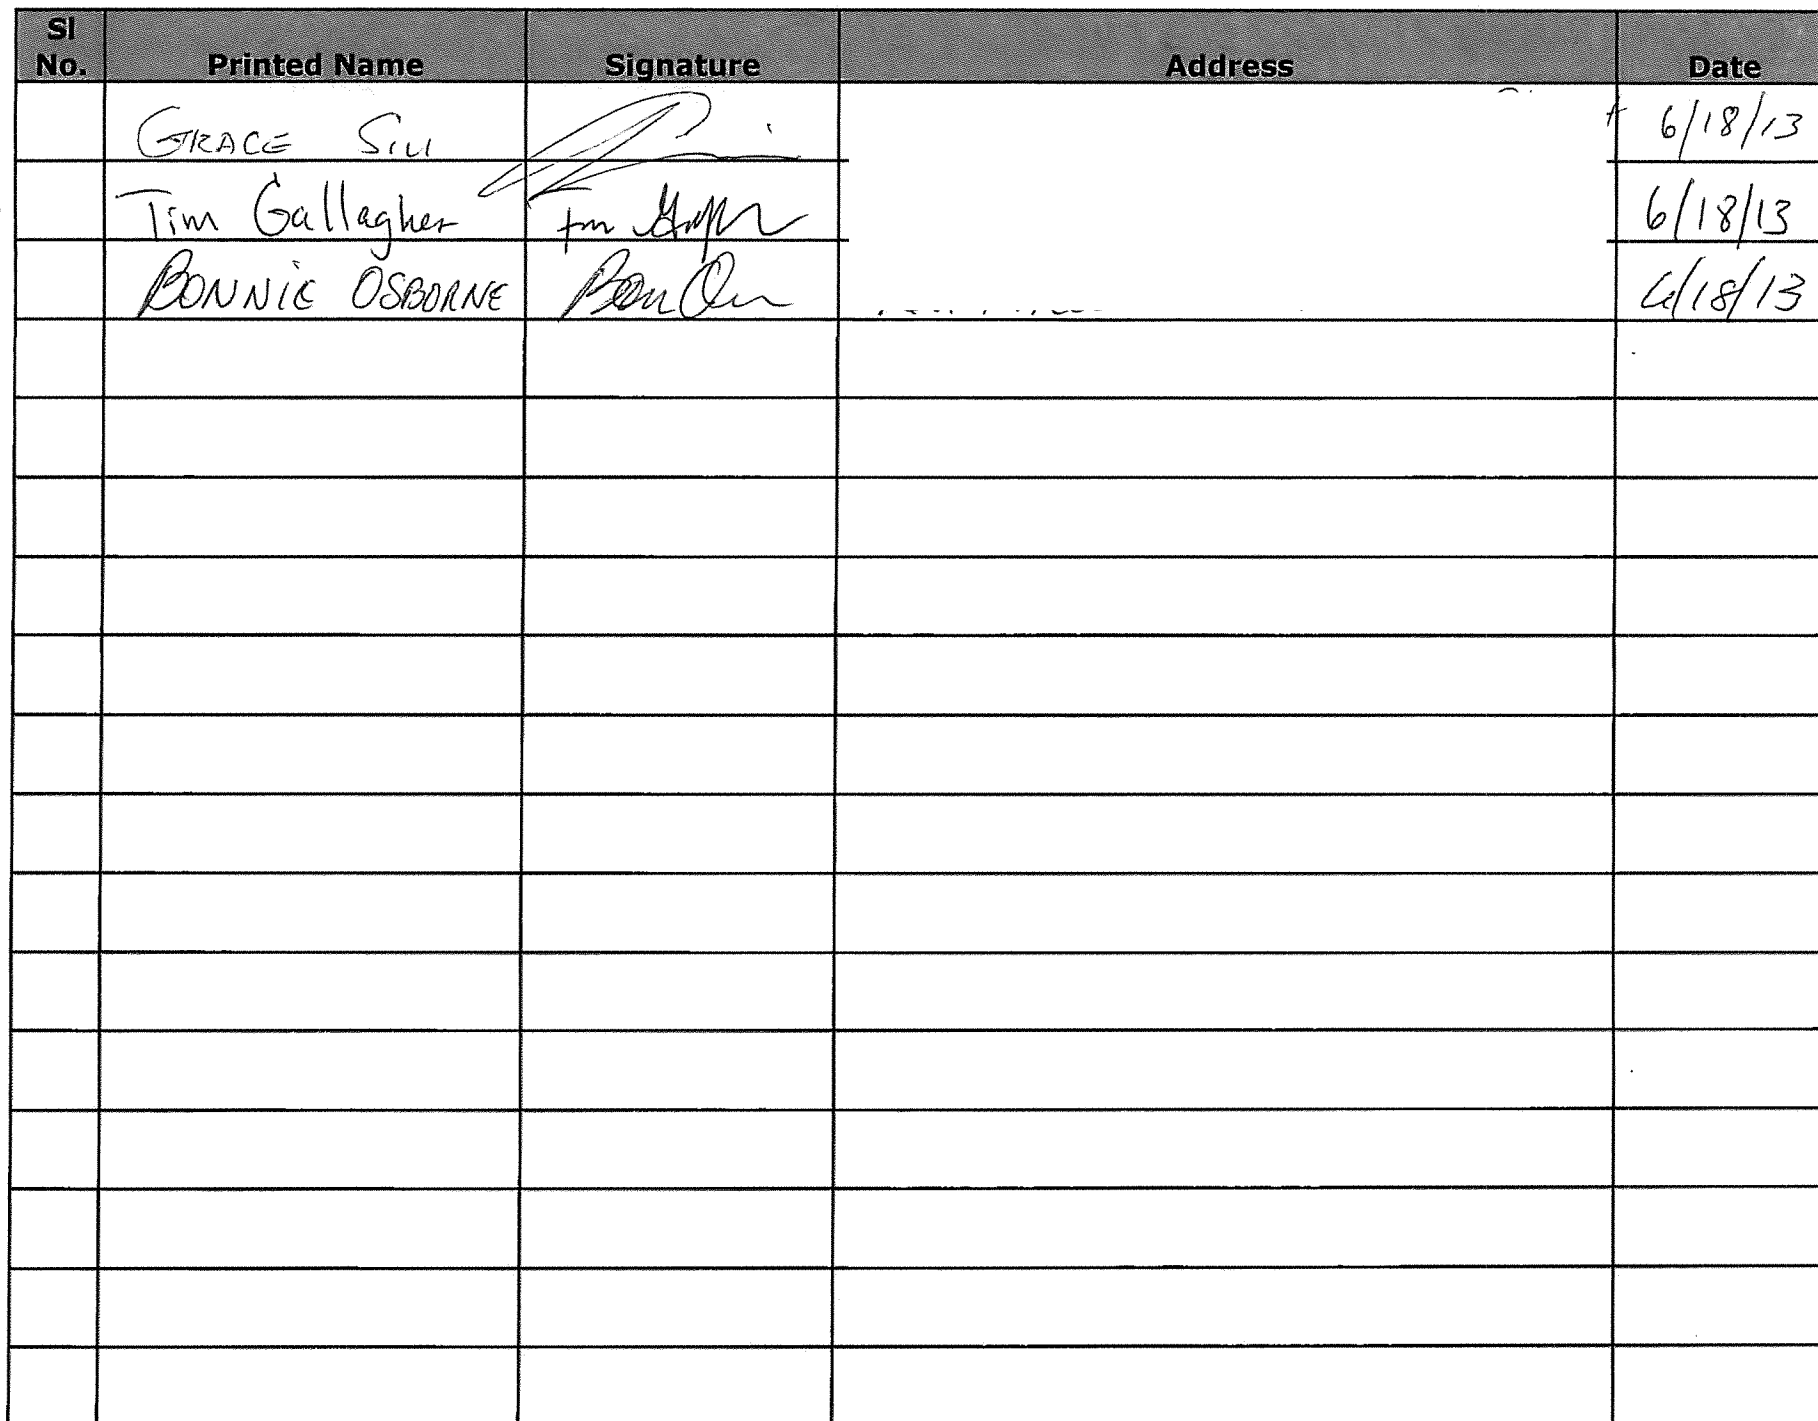 Sl No. Printed Name Signature Address Date
GRACE 6/18/13
Tim Gallagher 6/18/13
BONNIE OSBORNE 6/18/13